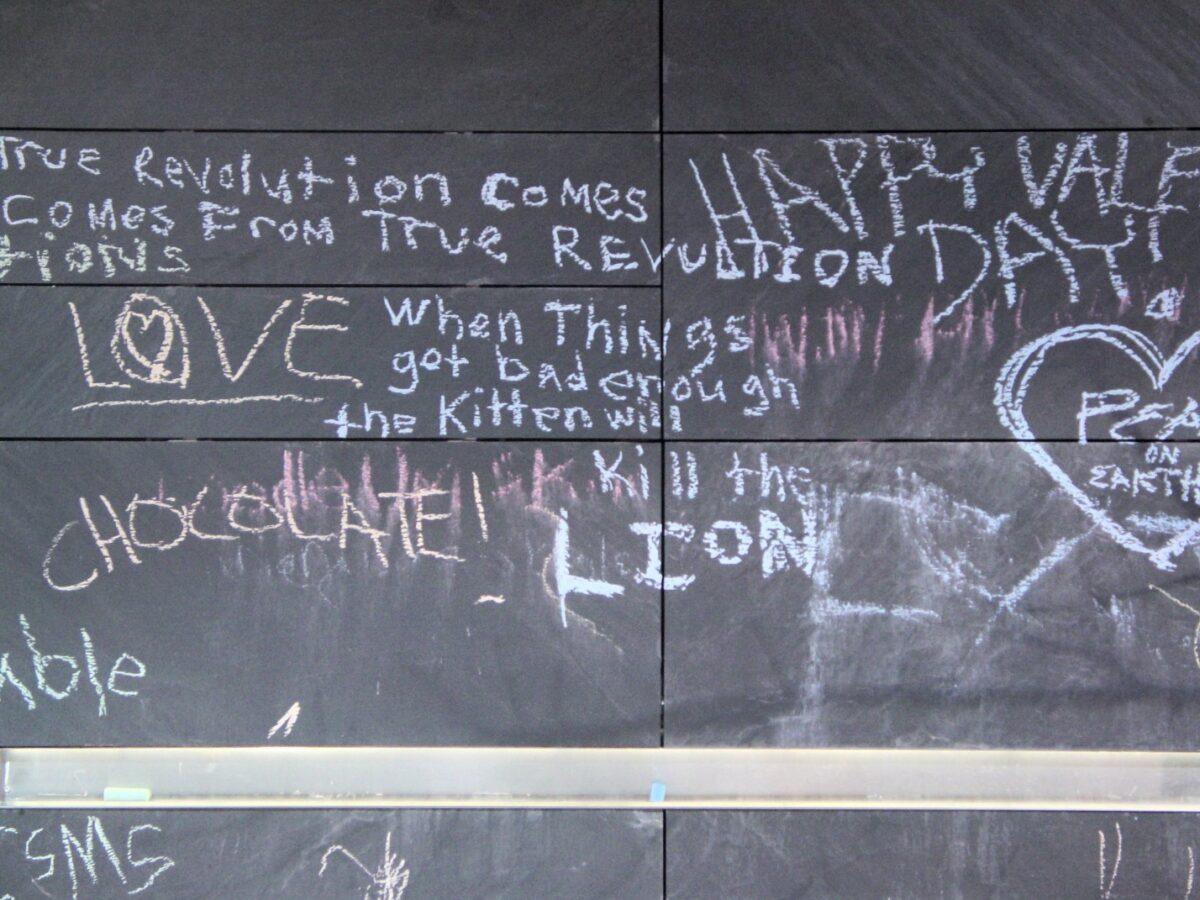 True Revolution comes
Comes From True REVULTION
tions
HAPPY VALE
DAY!
LOVE
when Things
got bad enough
the Kitten will
Kill the
LION
PEA
ON
EARTH
CHOCOLATE!
able
SMS